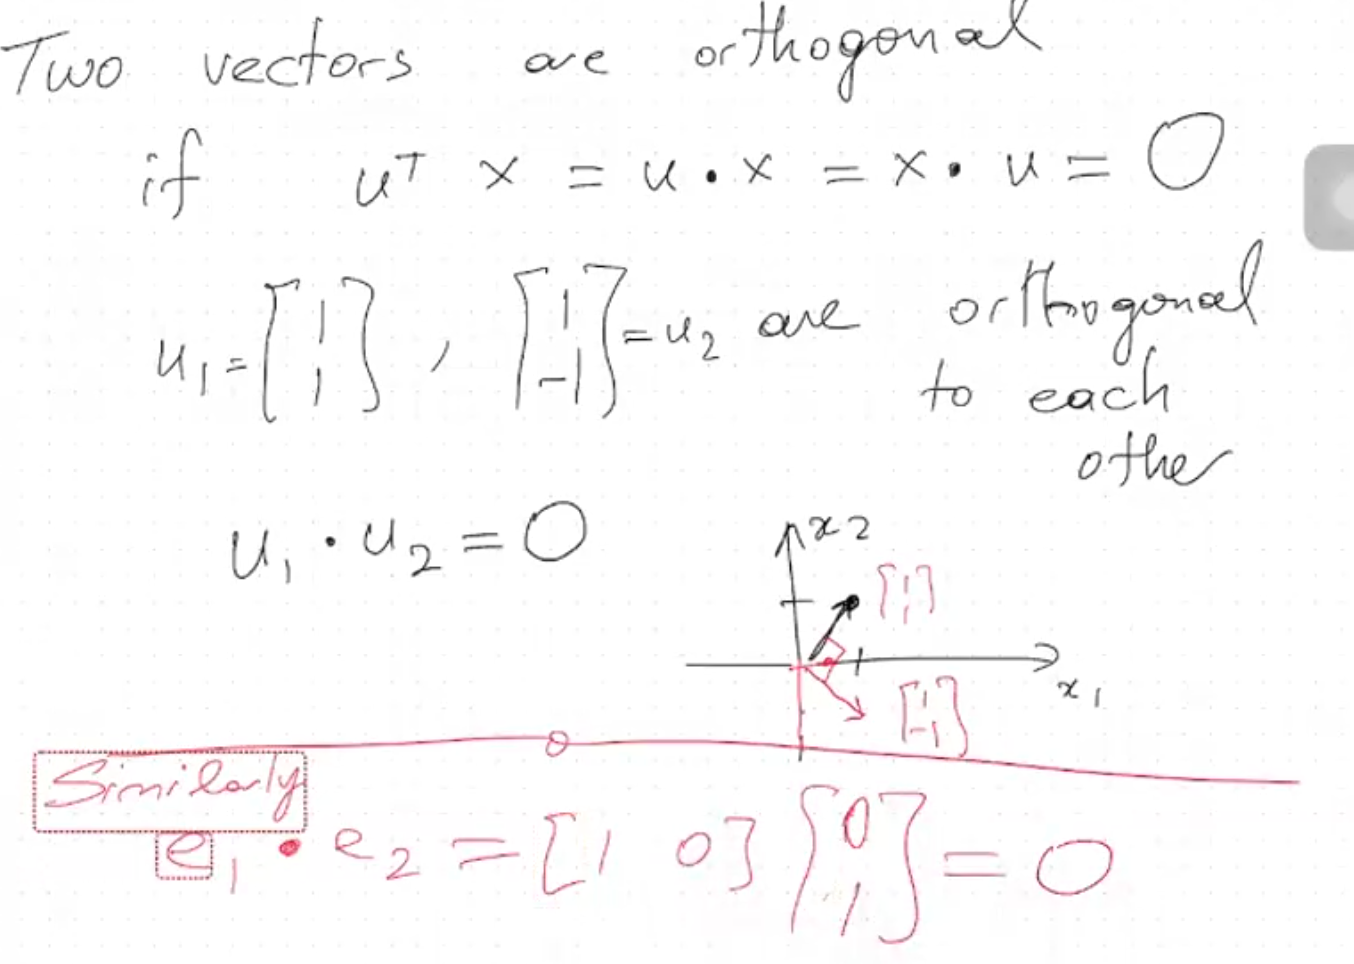 Two vectors are orthogonal
if uᵀ x = u • x = x • u = 0
u₁ = [1 1], [1 -1] = u₂ are orthogonal
to each
other
u₁ • u₂ = 0
x₂
[1 1]
x₁
[1 -1]
Similarly
e₁ • e₂ = [1 0] [0 1] = 0